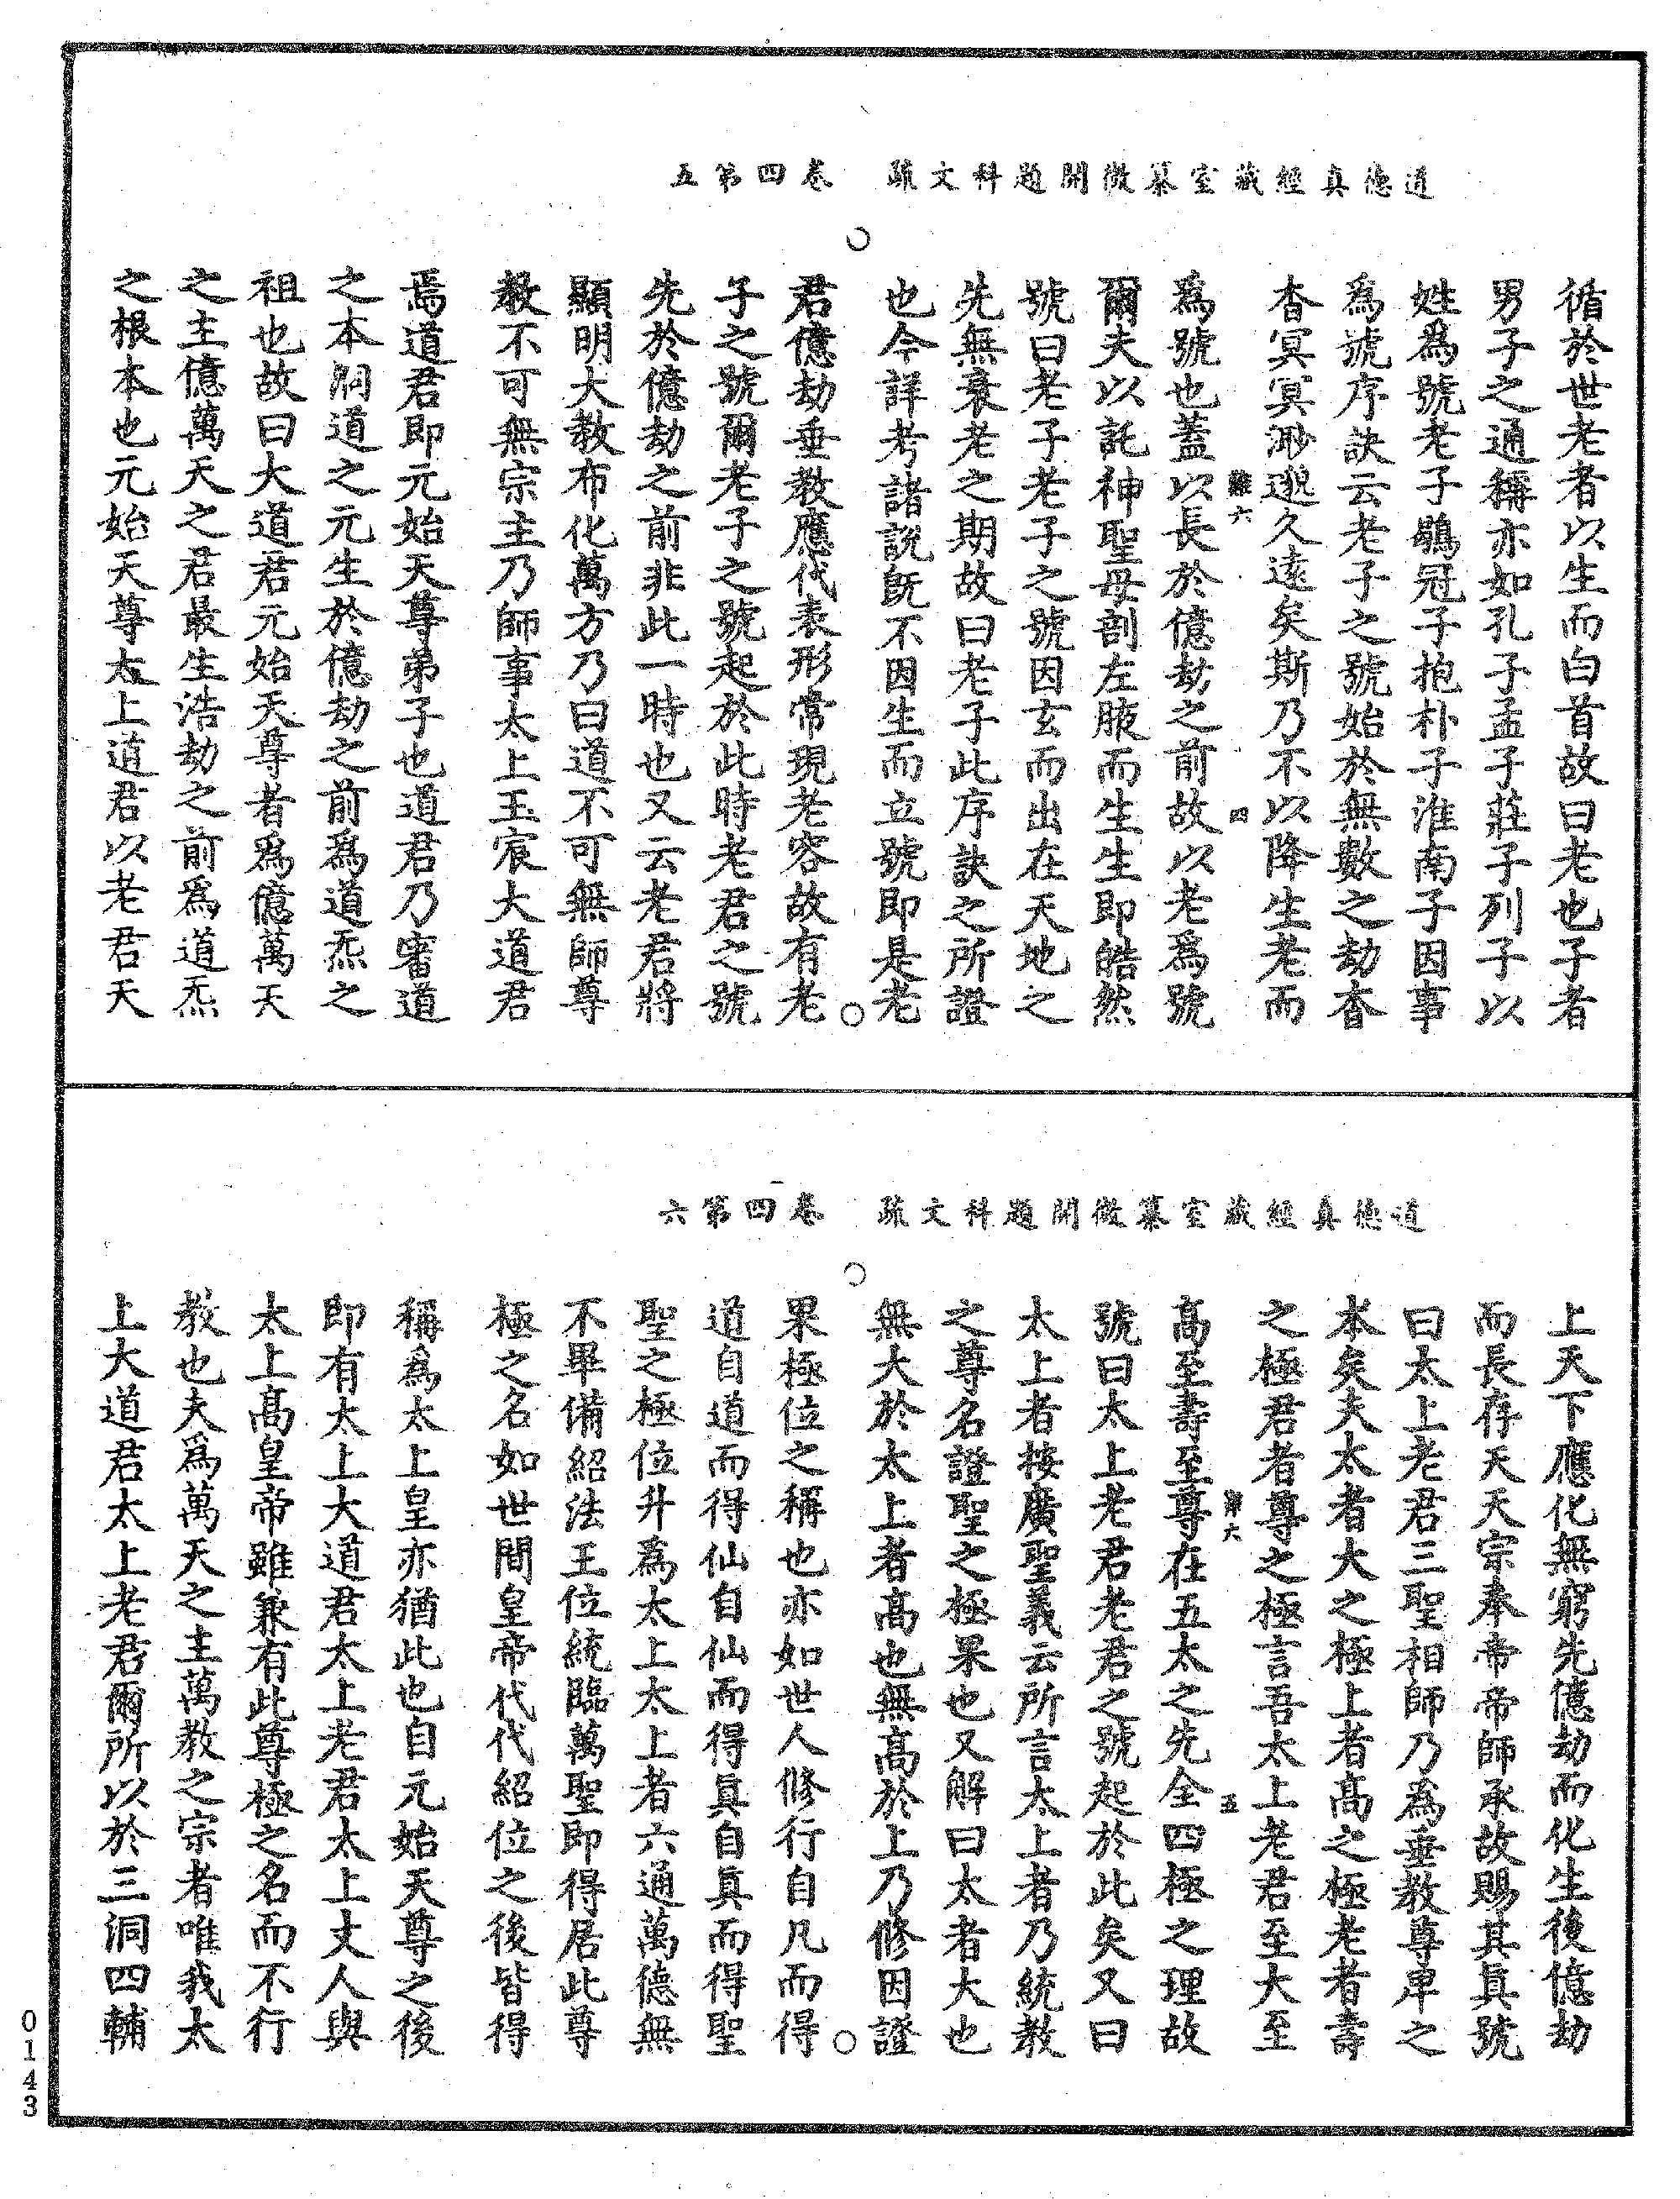 道德真經藏室纂微開題科文疏 卷四第五
循於世老者以生而白首故曰老也子者
男子之通稱亦如孔子孟子莊子列子以
姓爲號老子鶡冠子抱朴子淮南子因事
爲號序訣云老子之號始於無數之劫杳
杳冥冥渺邈久遠矣斯乃不以降生老而
難六 四
爲號也蓋以長於億劫之前故以老爲號
爾夫以託神聖母剖左腋而生生即皓然
號曰老子老子之號因玄而出在天地之
先無衰老之期故曰老子此序訣之所證
也今詳考諸說既不因生而立號即是老
君億劫垂教應代表形常現老容故有老
子之號爾老子之號起於此時老君之號
先於億劫之前非此一時也又云老君將
顯明大教布化萬方乃曰道不可無師尊
教不可無宗主乃師事太上玉宸大道君
焉道君即元始天尊弟子也道君乃審道
之本洞道之元生於億劫之前爲道炁之
祖也故曰大道君元始天尊者爲億萬天
之主億萬天之君最生浩劫之前爲道炁
之根本也元始天尊太上道君以老君天
道德真經藏室纂微開題科文疏 卷四第六
上天下應化無窮先億劫而化生後億劫
而長存天天宗奉帝帝師承故賜其真號
曰太上老君三聖相師乃爲垂教尊卑之
本矣夫太者大之極上者高之極老者壽
之極君者尊之極言吾太上老君至大至
難六 五
高至壽至尊在五太之先全四極之理故
號曰太上老君老君之號起於此矣又曰
太上者按廣聖義云所言太上者乃統教
之尊名證聖之極果也又解曰太者大也
無大於太上者高也無高於上乃修因證
果極位之稱也亦如世人修行自凡而得
道自道而得仙自仙而得真自真而得聖
聖之極位升爲太上太上者六通萬德無
不畢備紹法王位統臨萬聖即得居此尊
極之名如世間皇帝代代紹位之後皆得
稱爲太上皇亦猶此也自元始天尊之後
即有太上大道君太上老君太上丈人與
太上高皇帝雖兼有此尊極之名而不行
教也夫爲萬天之主萬教之宗者唯我太
上大道君太上老君爾所以於三洞四輔
0143